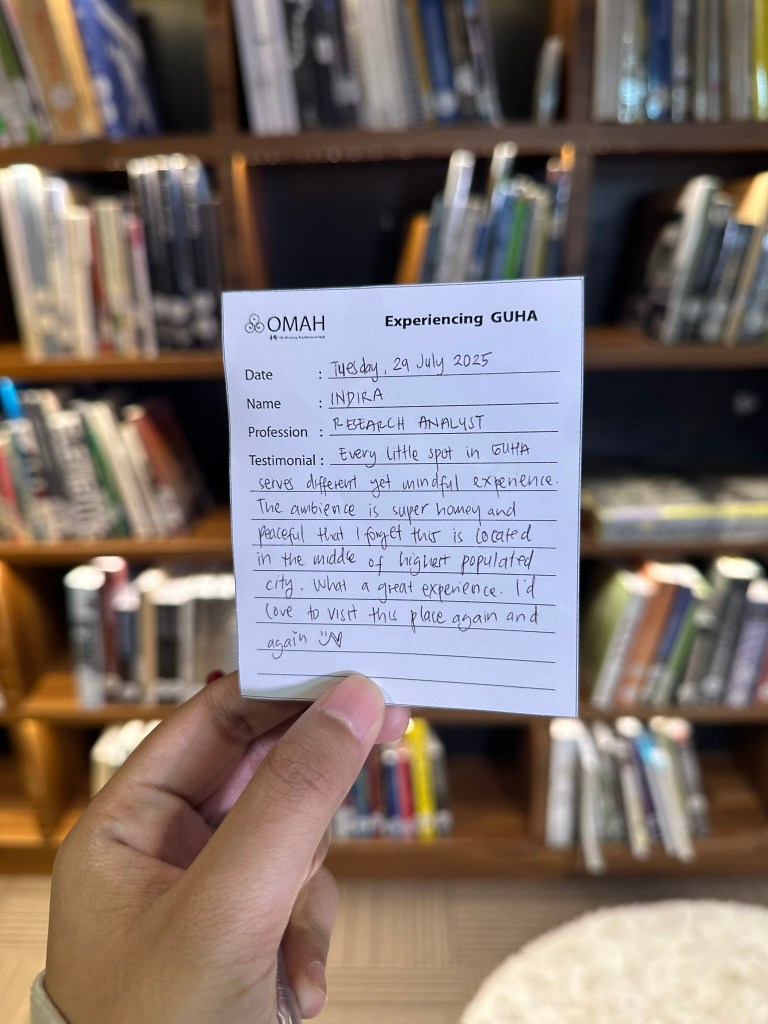 OMAH
Experiencing GUHA
Date : Tuesday, 29 July 2025
Name : INDIRA
Profession : RESEARCH ANALYST
Testimonial : Every little spot in GUHA
serves different yet mindful experience.
The ambience is super homey and
peaceful that I forget this is located
in the middle of highest populated
city. What a great experience. I'd
love to visit this place again and
again